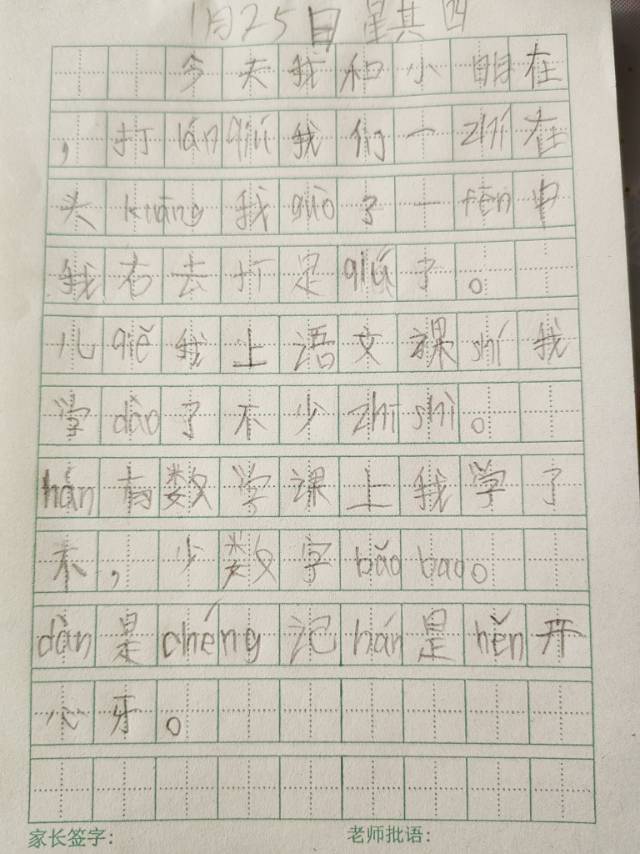 1月25日星其四
今天我和小明在
，打lán qiú我们一zhí在
头kuāng我guò了一fēn中
我右去打足qiú了。
儿qiě我上语文课shí我
学dào了不少zhī shì。
hán有数学课上我学了
不，少数字bǎo bao。
dàn是chéng记hán是hěn开
心牙。
家长签字： 老师批语：